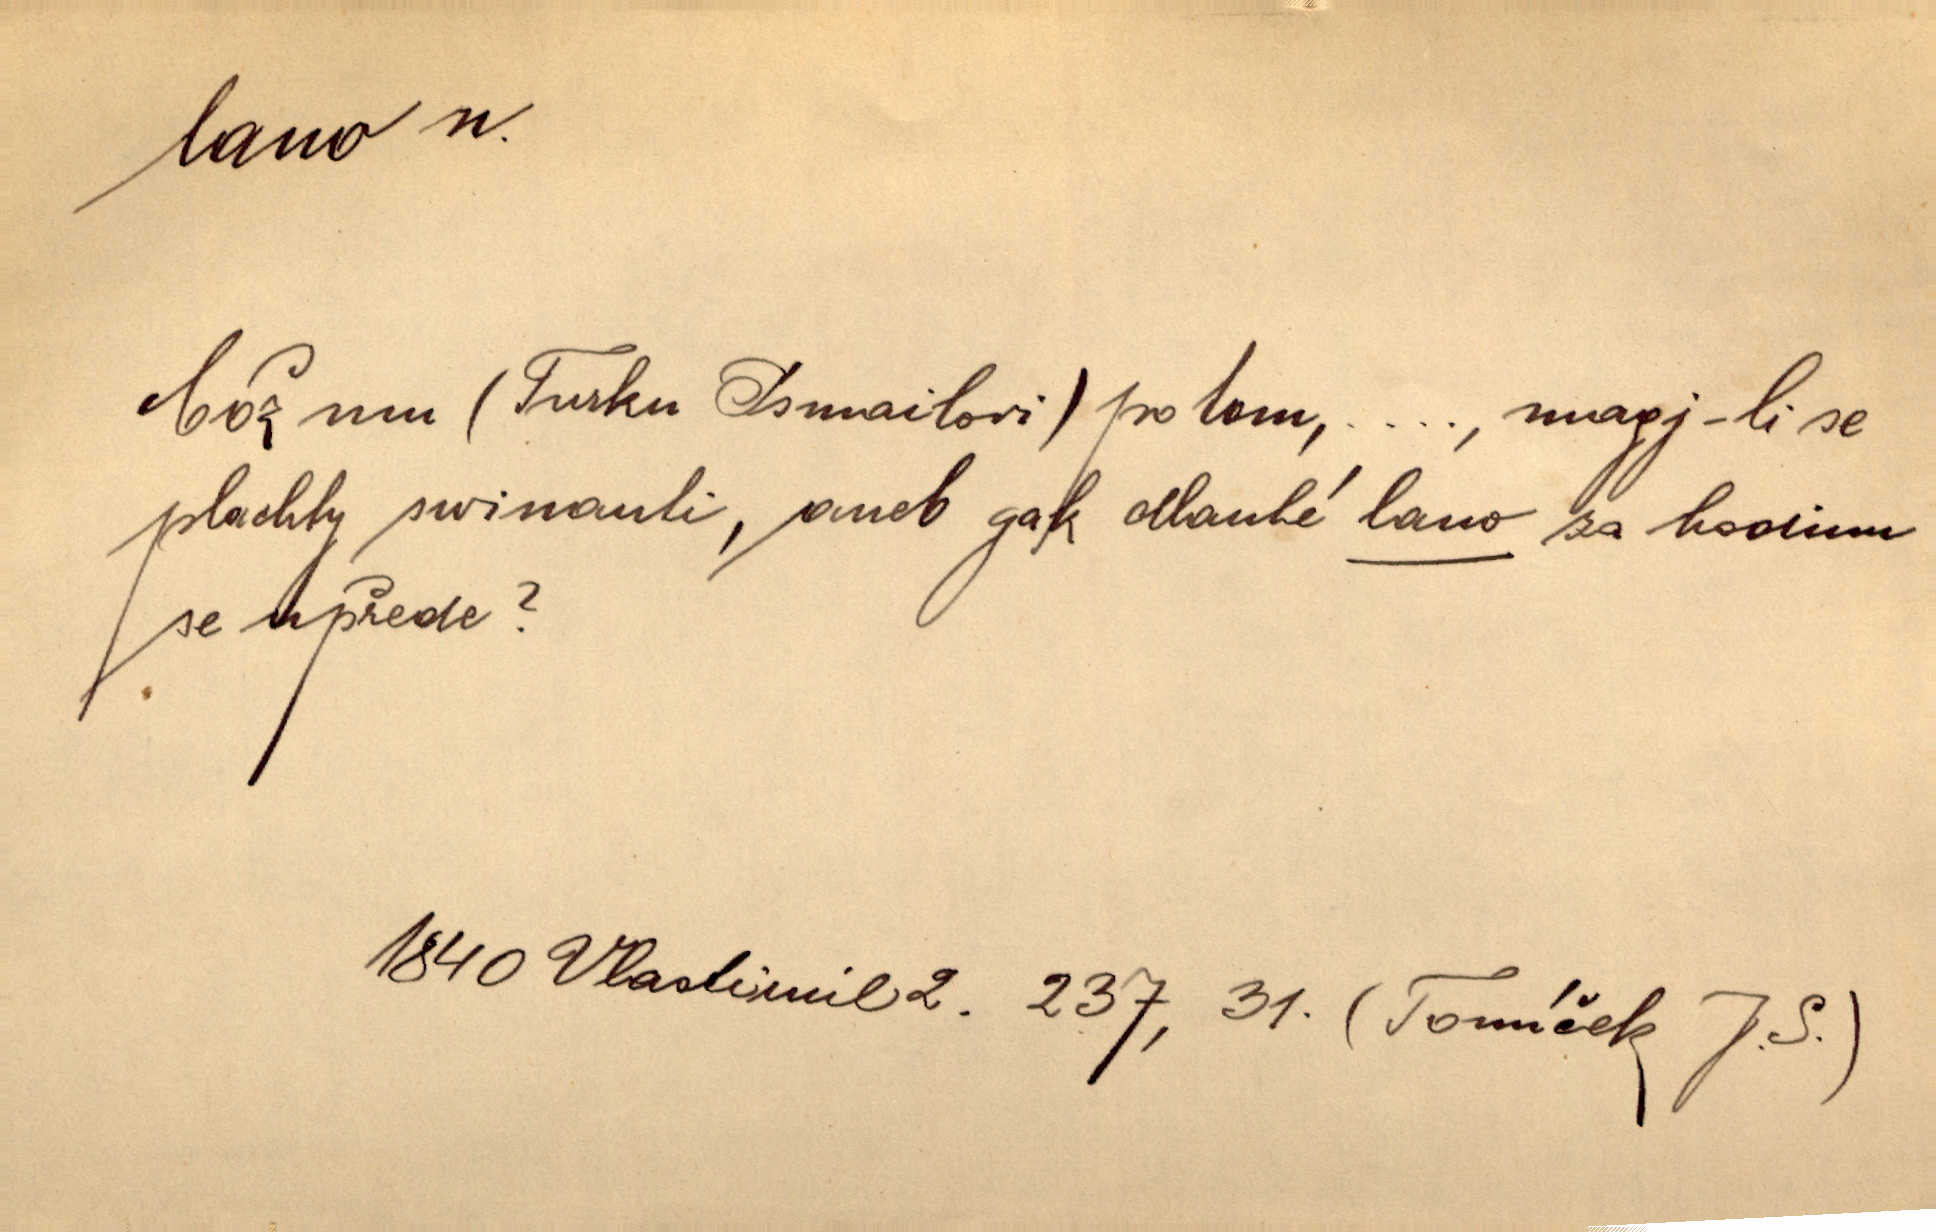 lano n.
Což mu (Turku Ismailovi) po tom, ...., magj-li se
plachty swinauti, aneb gak dlauhé lano za hodinu
se upřede?
1840 Vlastimil 2. 237, 31. (Tomíček J.S.)